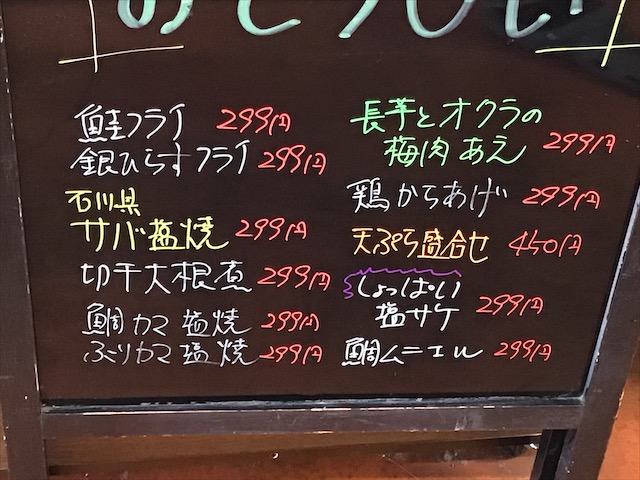 鮭フライ 299円
銀ひらすフライ 299円
石川県
サバ塩焼 299円
切干大根煮 299円
鯛カマ塩焼 299円
ぶりカマ塩焼 299円
長芋とオクラの
梅肉あえ 299円
鶏からあげ 299円
天ぷら盛合せ 450円
しょっぱい
塩サケ 299円
鯛ムニエル 299円